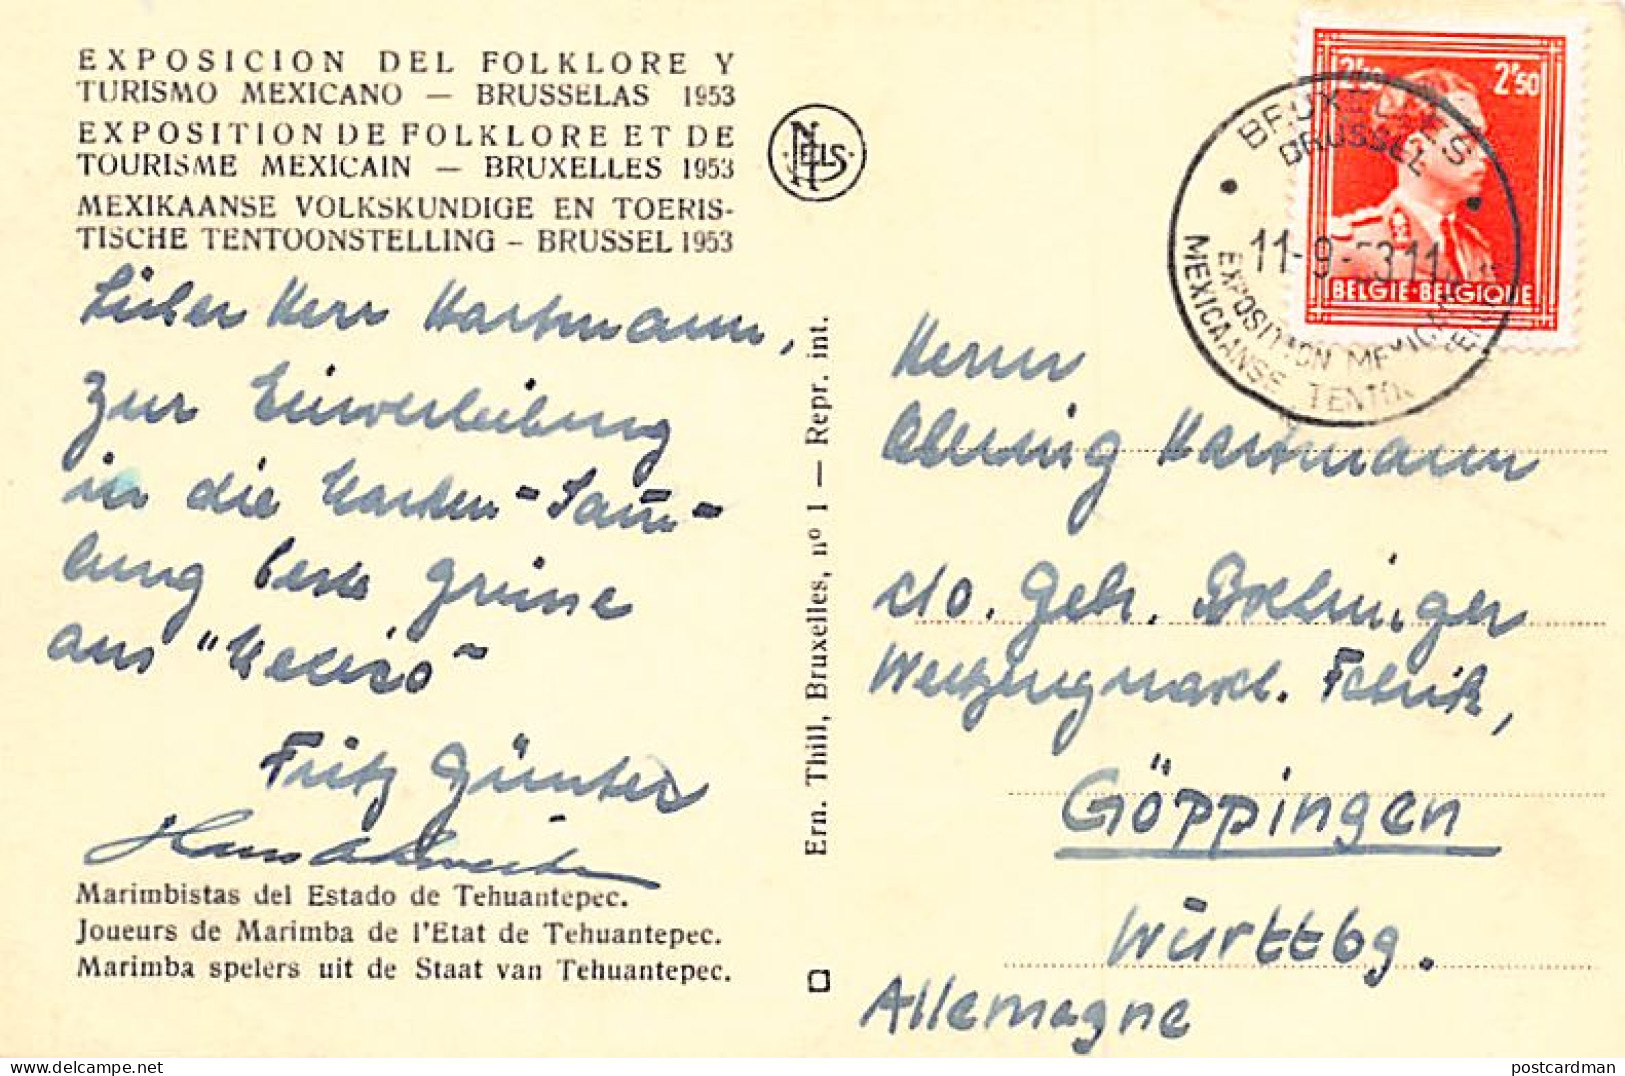 EXPOSICION DEL FOLKLORE Y
TURISMO MEXICANO — BRUSSELAS 1953
EXPOSITION DE FOLKLORE ET DE
TOURISME MEXICAIN — BRUXELLES 1953
MEXIKAANSE VOLKSKUNDIGE EN TOERIS-
TISCHE TENTOONSTELLING – BRUSSEL 1953
NELS
Lieber Herr Hartmann,
Zur Einverleibung
in die Karten-Samm-
lung beste Grüsse
aus "Mexico"
Fritz Günter
Marimbistas del Estado de Tehuantepec.
Joueurs de Marimba de l'Etat de Tehuantepec.
Marimba spelers uit de Staat van Tehuantepec.
Ern. Thill, Bruxelles, nº 1 — Repr. int.
2F50 2F50
BELGIE-BELGIQUE
BRUXELLES
BRUSSEL
11-9-53 11
EXPOSITION MEXICAINE
MEXICAANSE TENTO
Herrn
Obering Hartmann
c/o. Gebr. Boehringer
Werkzeugmasch. Fabrik,
Göppingen
Württbg.
Allemagne
postcardman